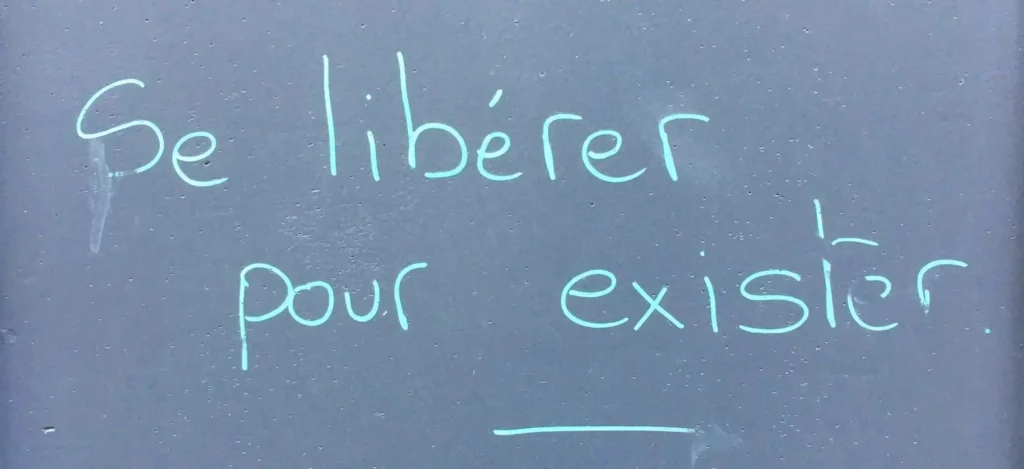 Se libérer
pour exister.